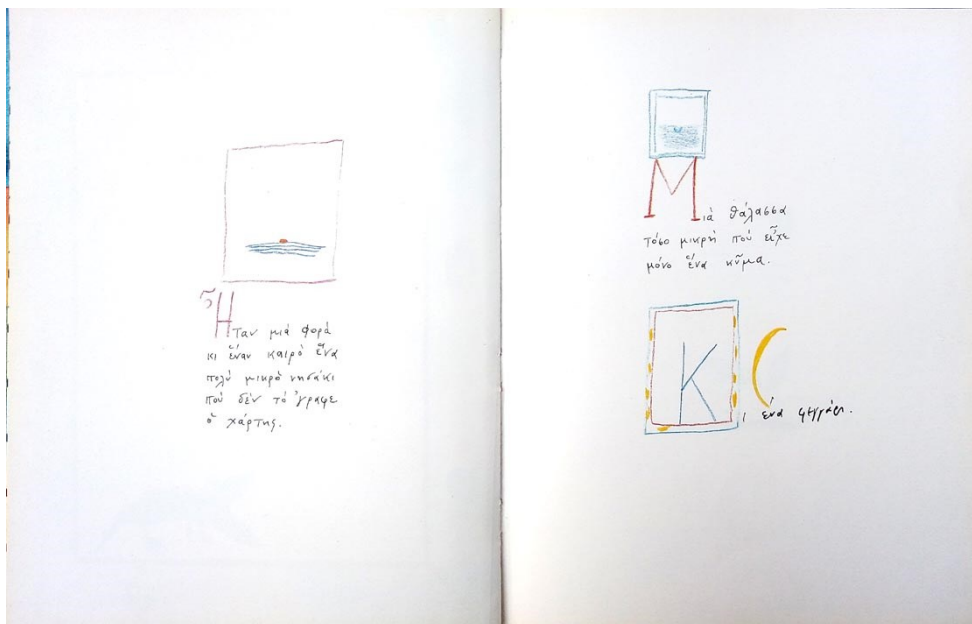 Ἦταν μιά φορά
κι ἕναν καιρό ἕνα
πολύ μικρό νησάκι
πού δέν τό 'γραφε
ὁ χάρτης.
Μιά θάλασσα
τόσο μικρή πού εἶχε
μόνο ἕνα κῦμα.
Κι ἕνα φεγγάρι.